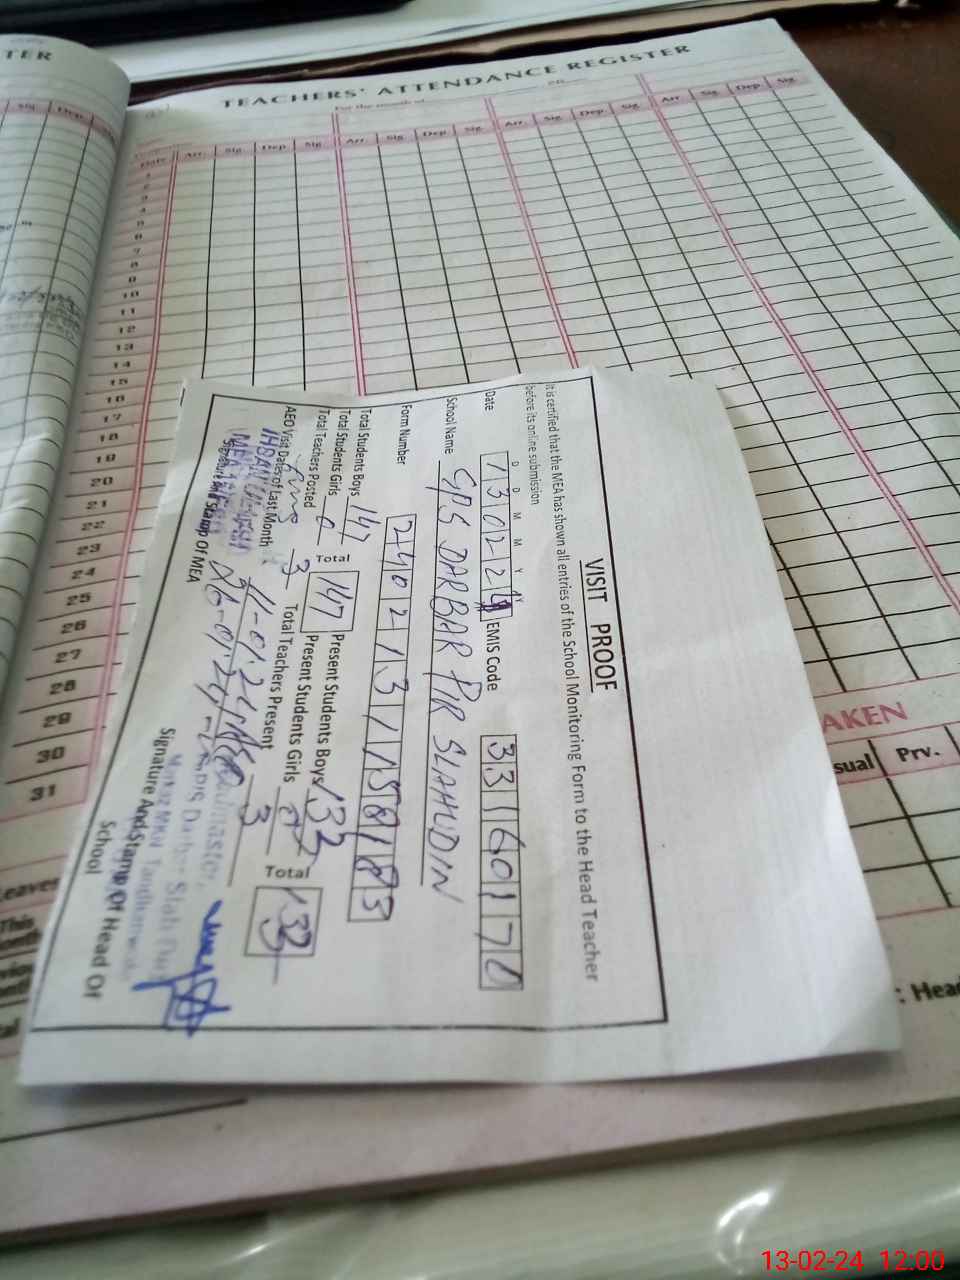 TER
TEACHERS' ATTENDANCE REGISTER
For the month of 20
Sig. Dep.
Date Arr. Sig. Dep. Sig. Arr. Sig. Dep. Sig. Arr. Sig. Dep. Sig. Arr. Sig. Dep. Sig.
1
2
3
4
5
6
7
8
9
10
11
12
13
14
15
16
17
18
19
20
21
22
23
24
25
26
27
28
29
30
31
AKEN
sual Prv.
: Head
eaves
This
VISIT PROOF
It is certified that the MEA has shown all entries of the School Monitoring Form to the Head Teacher
before its online submission
D D M M Y Y
Date 130224 EMIS Code 33160170
School Name GPS DARBAR PIR SLAHUDIN
Form Number
Total Students Boys 147 Total 147 Present Students Boys 133 Total 133
Total Students Girls 0 Present Students Girls 0
Total Teachers Posted 3 Total Teachers Present 3
AEO Visit Dates of Last Month 11-01-24
Signature and Stamp Of MEA
Signature And Stamp Of Head Of
School
13-02-24 12:00